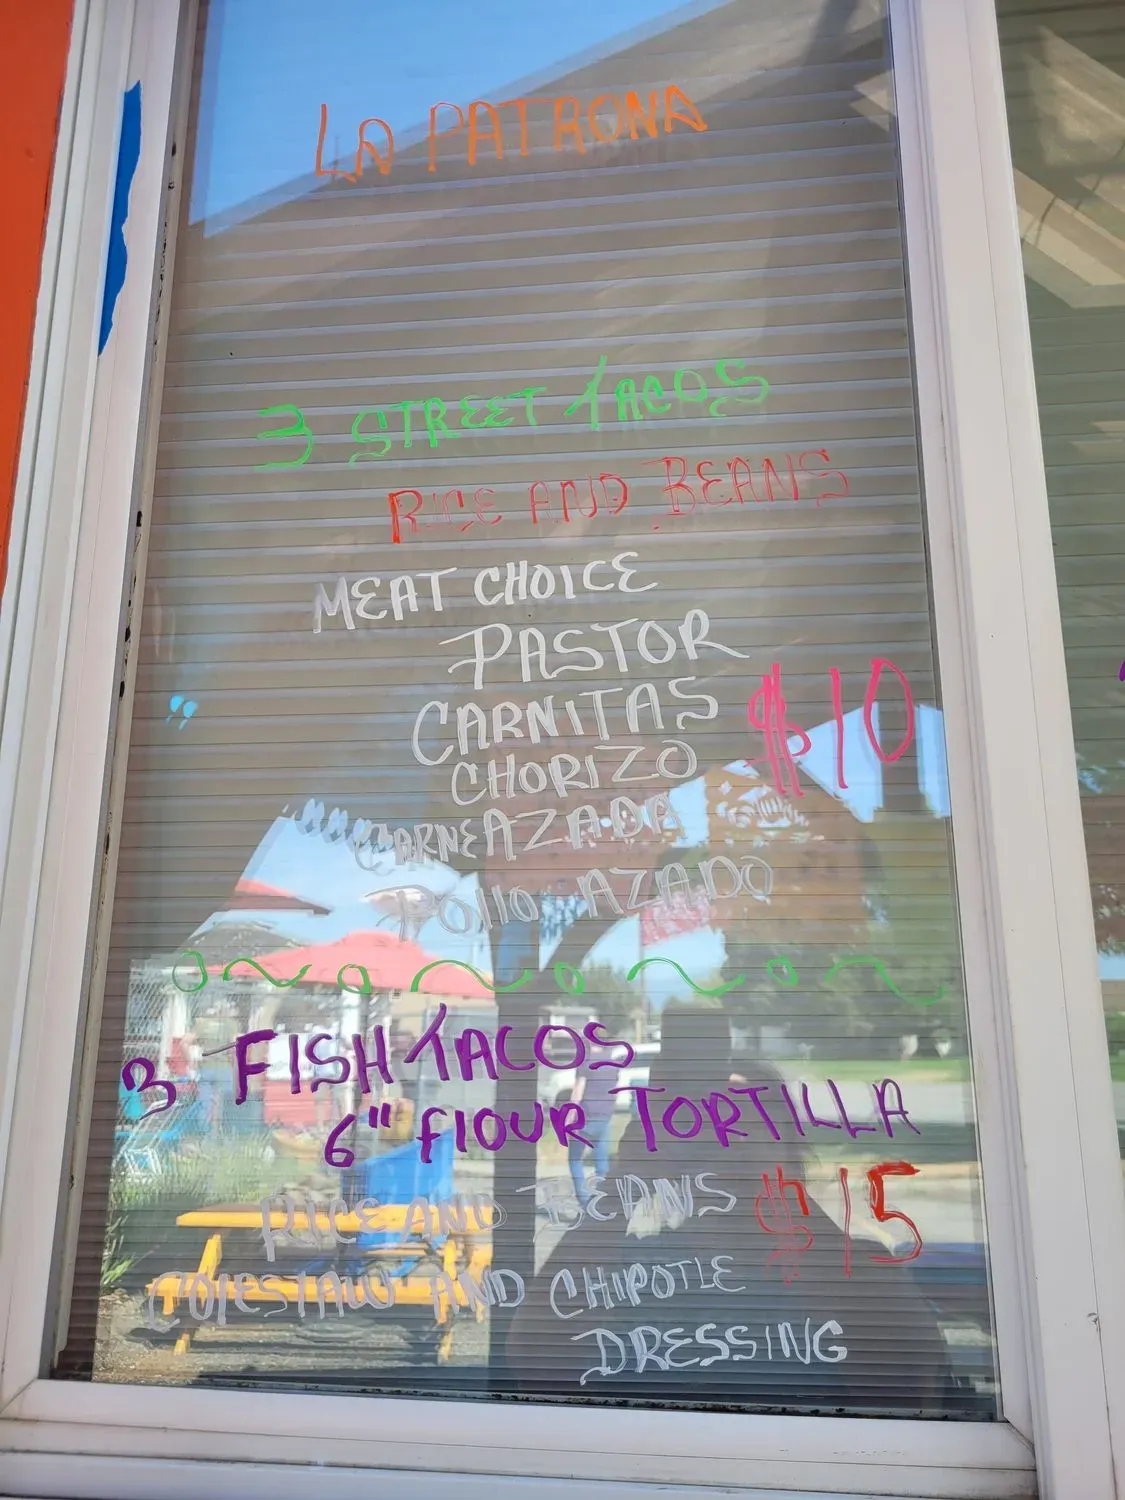 LA PATRONA
3 STREET TACOS
RICE AND BEANS
MEAT CHOICE
PASTOR
CARNITAS
$10
CHORIZO
CARNE AZADA
POllO AZADO
3 FISH TACOS
6" FlOUR TORTILLA
RICE AND BEANS
$15
COlESlAW AND CHIPOTLE
DRESSING